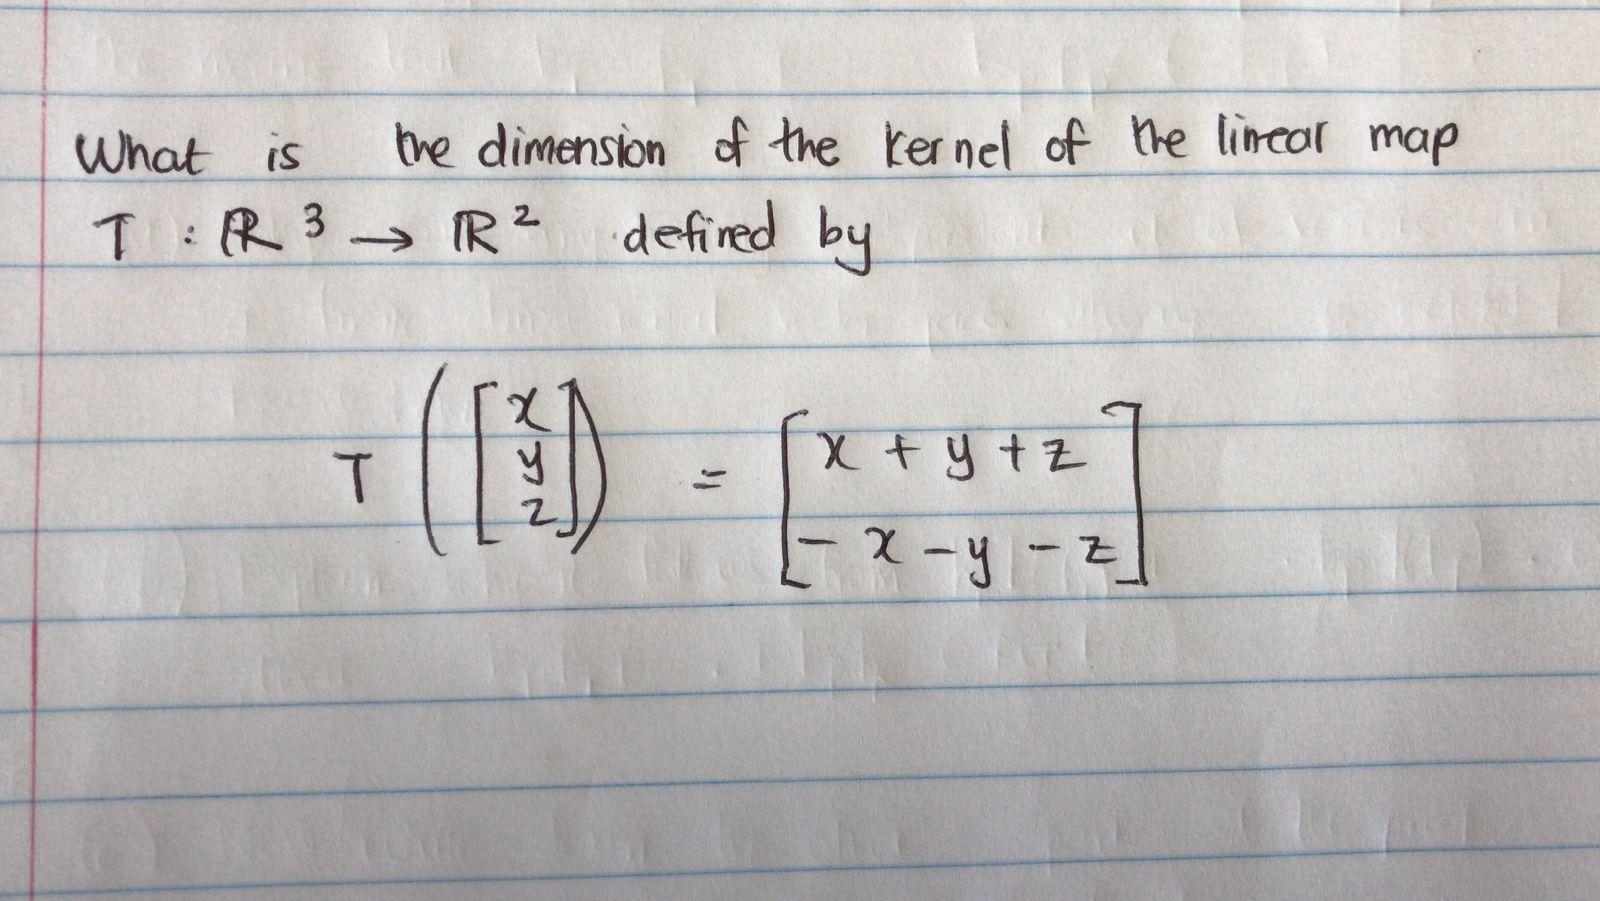 What is the dimension of the kernel of the linear map
T : ℝ³ → ℝ² defined by
T ( [ x y z ] ) = [ x + y + z
- x - y - z ]